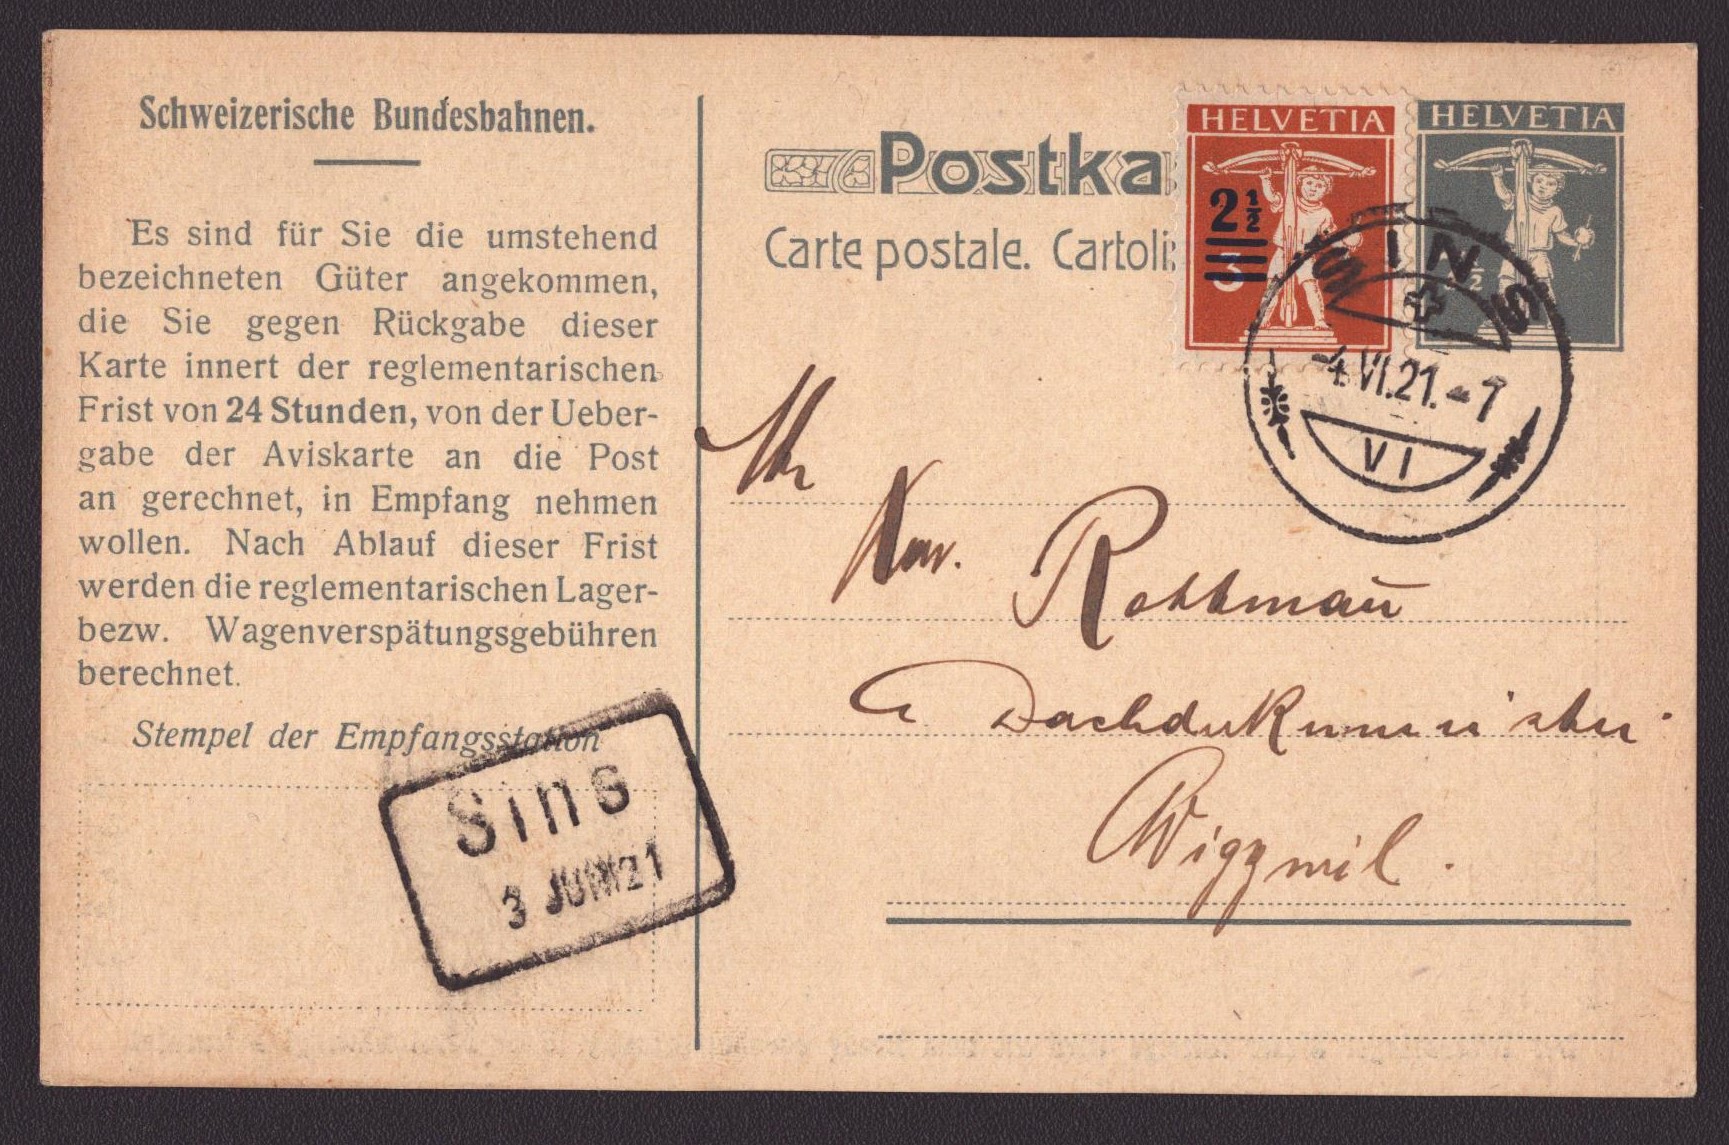 Schweizerische Bundesbahnen.
Es sind für Sie die umstehend
bezeichneten Güter angekommen,
die Sie gegen Rückgabe dieser
Karte innert der reglementarischen
Frist von 24 Stunden, von der Ueber-
gabe der Aviskarte an die Post
an gerechnet, in Empfang nehmen
wollen. Nach Ablauf dieser Frist
werden die reglementarischen Lager-
bezw. Wagenverspätungsgebühren
berechnet.
Stempel der Empfangsstation
3 JUNI 21
Postka
Carte postale. Cartoli
HELVETIA
2½
3
HELVETIA
½
SINS
-4.VI.21.-7
VI
Dachdekermeister
Wiggwil.